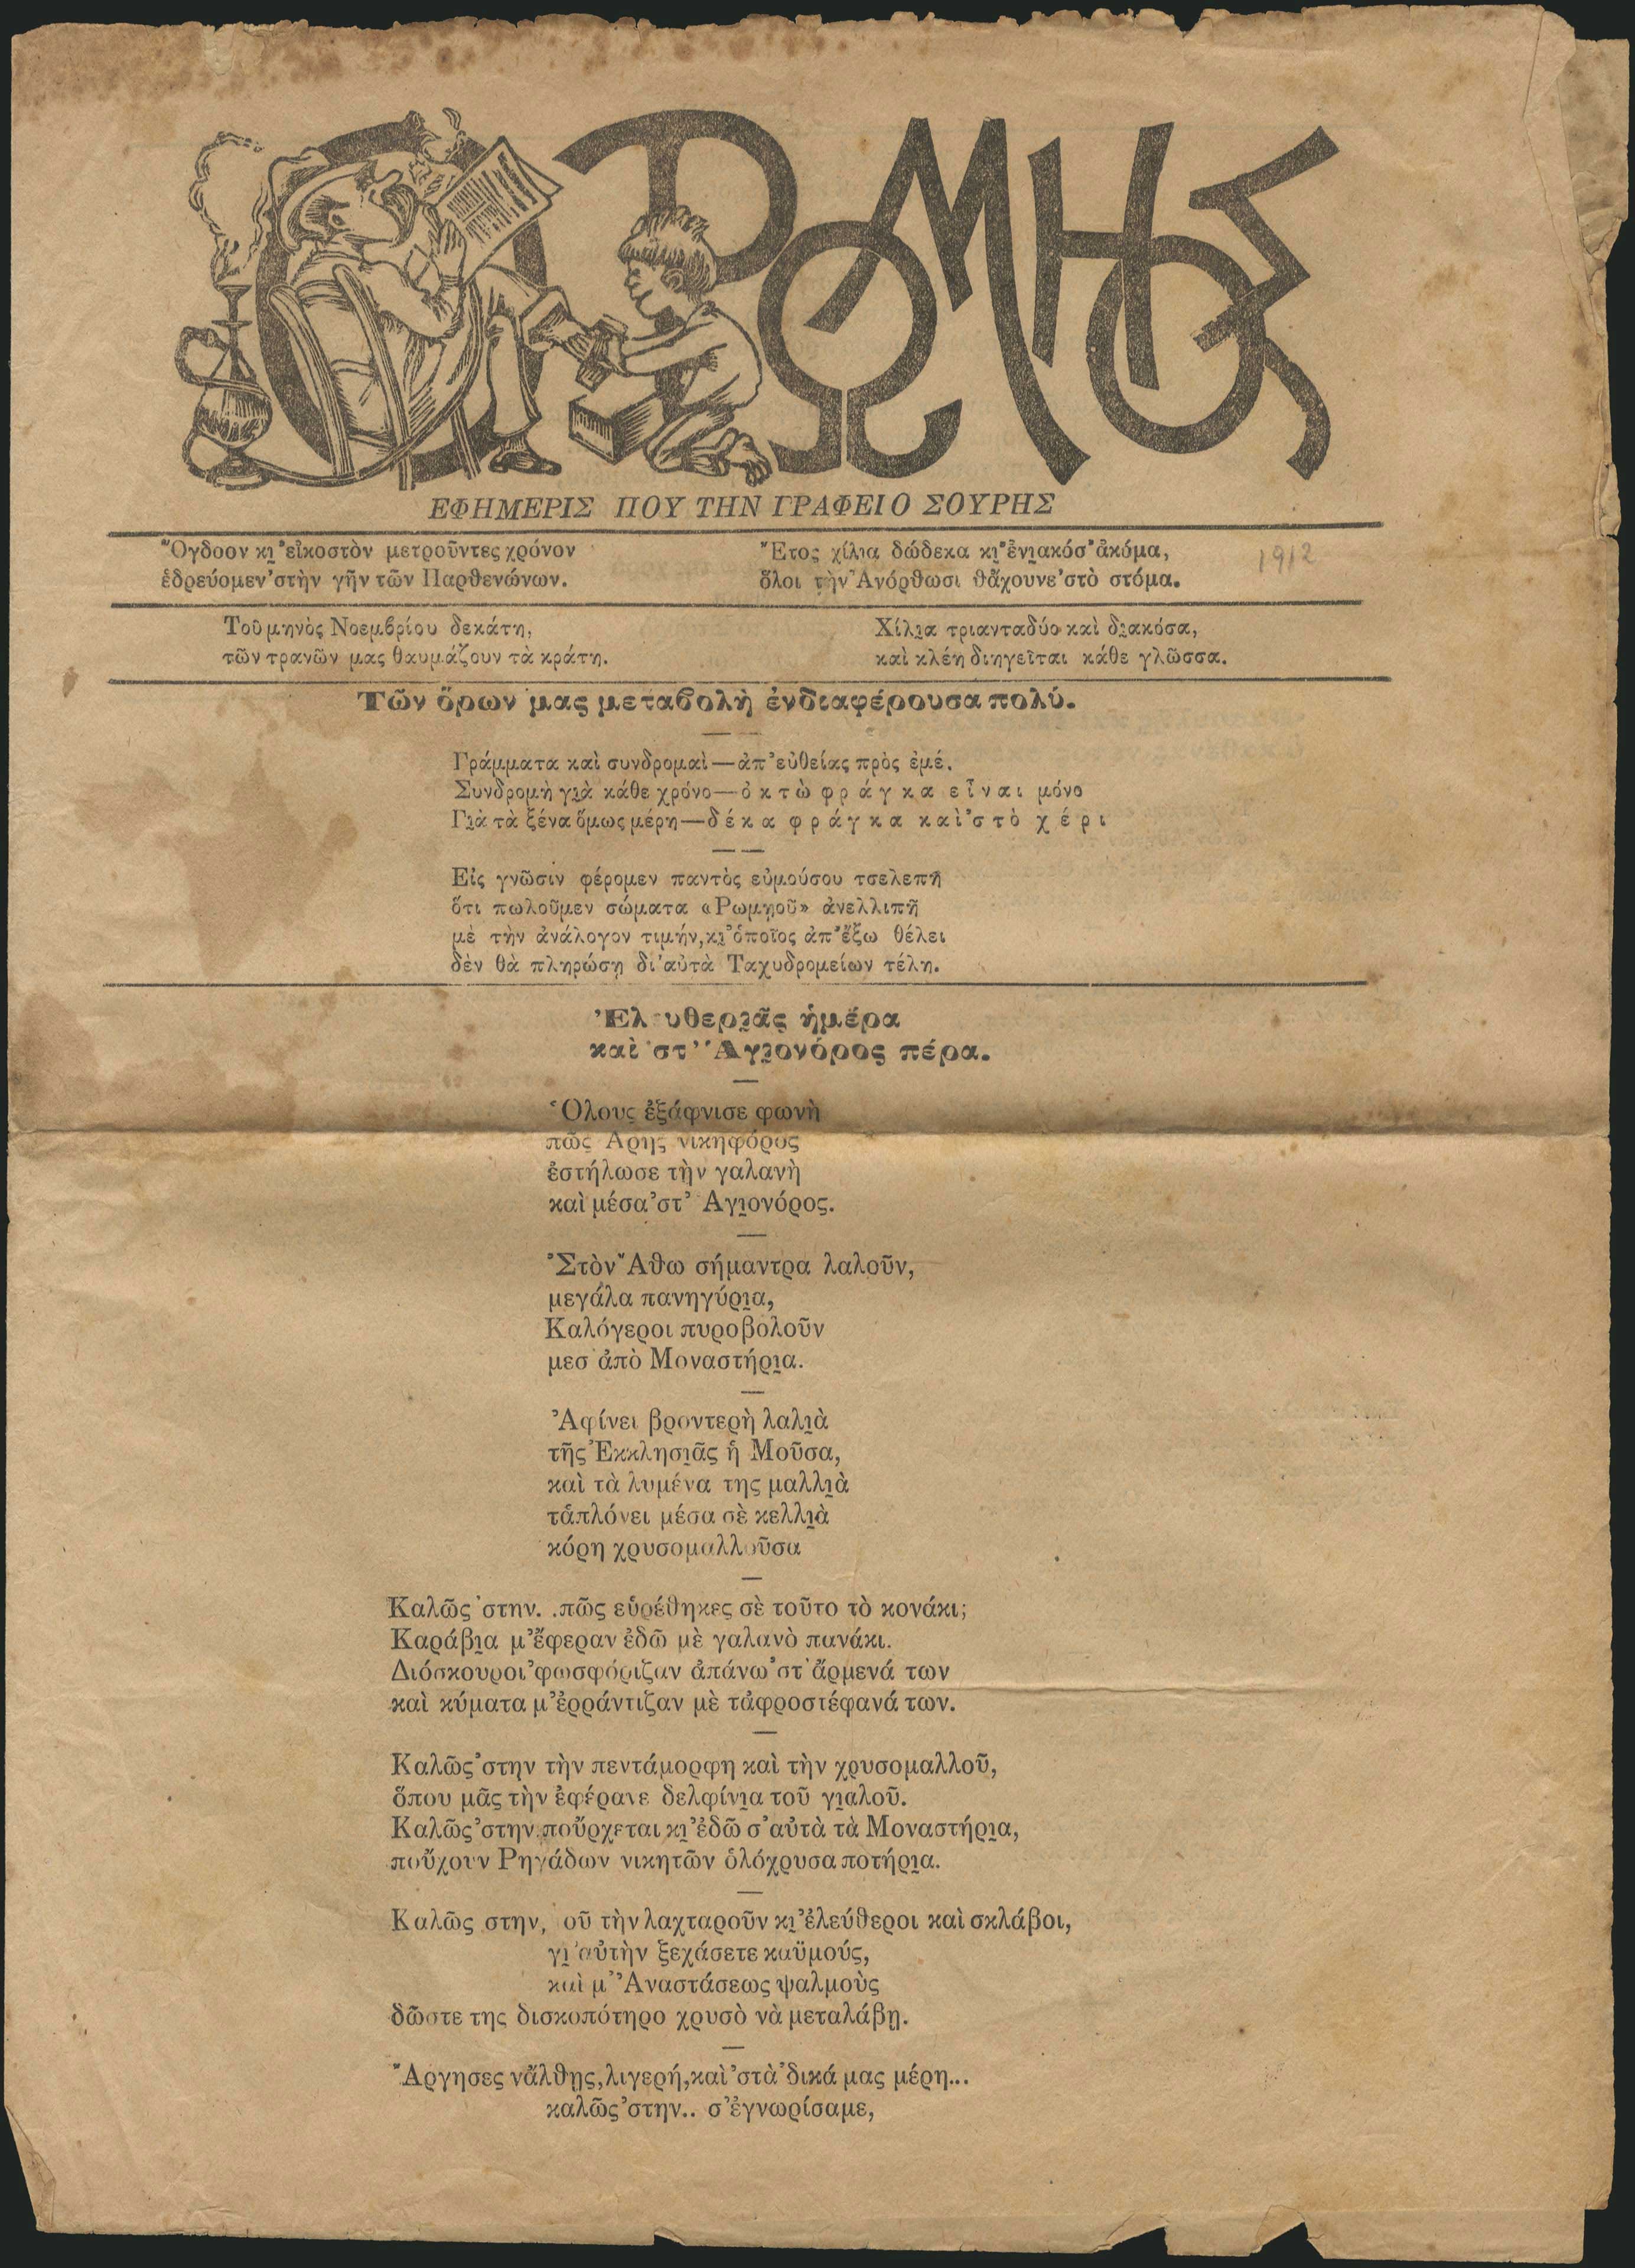 Ο ΡΩΜΗΟΣ
ΕΦΗΜΕΡΙΣ ΠΟΥ ΤΗΝ ΓΡΑΦΕΙ Ο ΣΟΥΡΗΣ
Ὄγδοον κι̯ ’εἰκοστὸν μετροῦντες χρόνον
ἑδρεύομεν ’στὴν γῆν τῶν Παρθενώνων.
Ἔτος χίλια δώδεκα κι̯ ’ἐνι̯ακόσ’ ἀκόμα,
ὅλοι τὴν Ἀνόρθωσι θἄχουνε ’στὸ στόμα.
1912
Τοῦ μηνὸς Νοεμβρίου δεκάτη,
τῶν τρανῶν μας θαυμάζουν τὰ κράτη.
Χίλι̯α τριανταδύο καὶ δι̯ακόσα,
καὶ κλέη διηγεῖται κάθε γλῶσσα.
Τῶν ὅρων μας μεταβολὴ ἐνδιαφέρουσα πολύ.
Γράμματα καὶ συνδρομαὶ—ἀπ’ εὐθείας πρὸς ἐμέ.
Συνδρομὴ γι̯ὰ κάθε χρόνο—ὀκτὼ φράγκα εἶναι μόνο
Γι̯ὰ τὰ ξένα ὅμως μέρη—δέκα φράγκα καὶ ’στὸ χέρι
Εἰς γνῶσιν φέρομεν παντὸς εὐμούσου τσελεπῆ
ὅτι πωλοῦμεν σώματα «Ρωμῃοῦ» ἀνελλιπῆ
μὲ τὴν ἀνάλογον τιμήν, κι̯ ’ὁποῖος ἀπ’ ἔξω θέλει
δὲν θὰ πληρώσῃ δι’ αὐτὰ Ταχυδρομείων τέλη.
Ἐλ υθερι̯ᾶς ἡμέρα
καὶ ’στ’ Ἁγι̯ονόρος πέρα.
Ὅλους ἐξάφνισε φωνὴ
πῶς Αρης νικηφόρος
ἐστήλωσε τὴν γαλανὴ
καὶ μέσα ’στ’ Αγι̯ονόρος.
Στὸν Ἄθω σήμαντρα λαλοῦν,
μεγάλα πανηγύρι̯α,
Καλόγεροι πυροβολοῦν
μεσ’ ἀπὸ Μοναστήρι̯α.
Ἀφίνει βροντερὴ λαλι̯ὰ
τῆς Ἐκκλησι̯ᾶς ἡ Μοῦσα,
καὶ τὰ λυμένα της μαλλι̯ὰ
τἁπλόνει μέσα σὲ κελλι̯ὰ
κόρη χρυσομαλλοῦσα
Καλῶς ’στην. . πῶς εὑρέθηκες σὲ τοῦτο τὸ κονάκι;
Καράβι̯α μ’ ἔφεραν ἐδῶ μὲ γαλανὸ πανάκι.
Διόσκουροι ’φωσφόριζαν ἀπάνω ’στ’ ἄρμενά των
καὶ κύματα μ’ ἐρράντιζαν μὲ τἀφροστέφανά των.
Καλῶς ’στην τὴν πεντάμορφη καὶ τὴν χρυσομαλλοῦ,
ὅπου μᾶς τὴν ἐφέρανε δελφίνι̯α τοῦ γι̯αλοῦ.
Καλῶς ’στην ποὔρχεται κι̯ ’ἐδῶ σ’ αὐτὰ τὰ Μοναστήρι̯α,
ποὔχουν Ρηγάδων νικητῶν ὁλόχρυσα ποτήρι̯α.
Καλῶς στην, οῦ τὴν λαχταροῦν κι̯ ’ἐλεύθεροι καὶ σκλάβοι,
γι̯ ’αὐτὴν ξεχάσετε καϋμούς,
καὶ μ’ Ἀναστάσεως ψαλμοὺς
δῶστε της δισκοπότηρο χρυσὸ νὰ μεταλάβῃ.
Ἄργησες νἄλθῃς, λιγερή, καὶ ’στὰ ’δικά μας μέρη...
καλῶς ’στην.. σ’ ἐγνωρίσαμε,